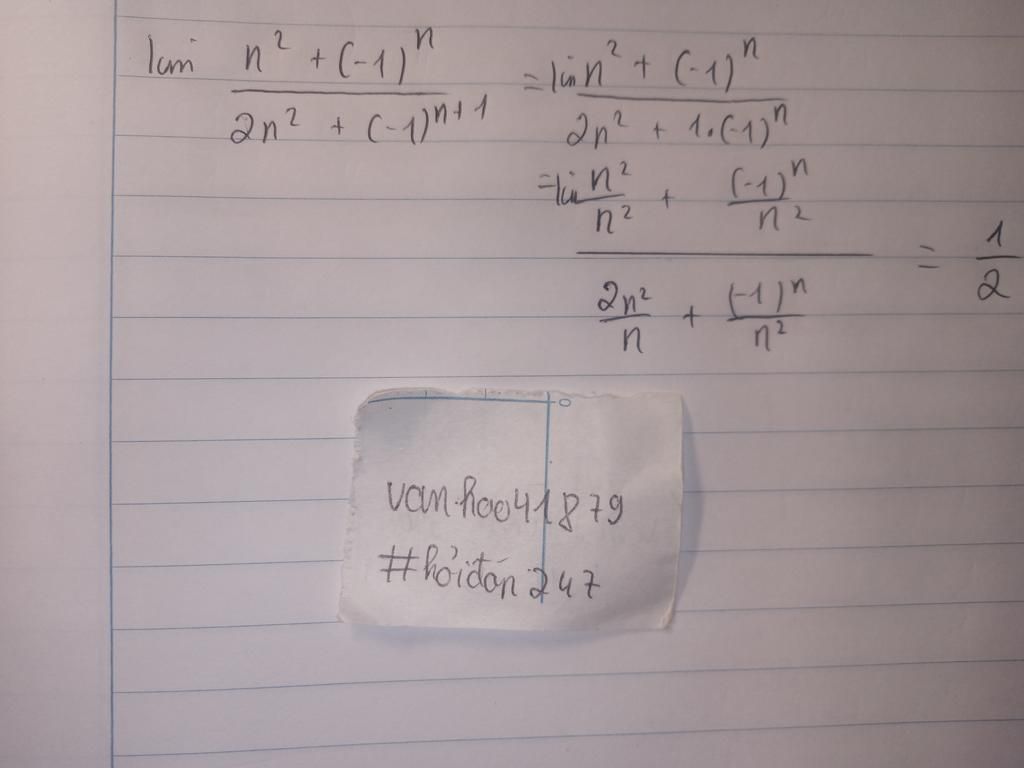 lim n² + (-1)ⁿ / 2n² + (-1)ⁿ⁺¹ = lim n² + (-1)ⁿ / 2n² + 1.(-1)ⁿ
= lim n²/n² + (-1)ⁿ/n² / 2n²/n + (-1)ⁿ/n² = 1/2
0
van.hao41879
#hỏiđán247